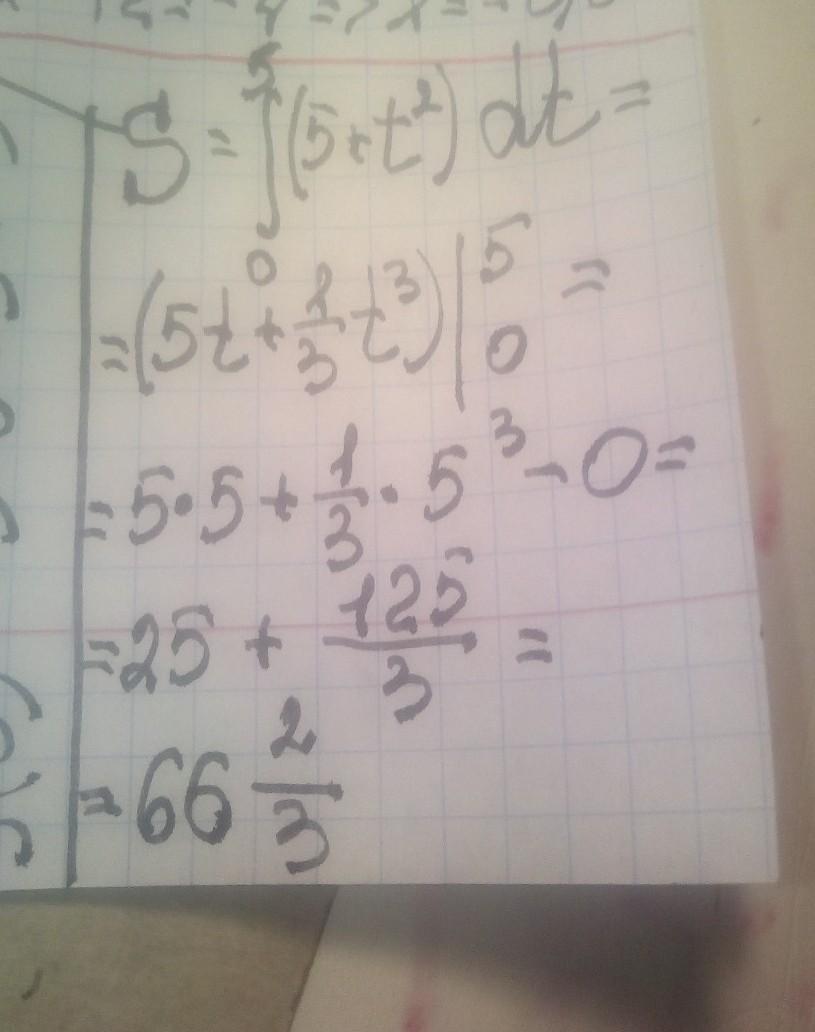 S = ∫₀⁵ (5+t²) dt =
= (5t + 1/3 t³) |₀⁵ =
= 5·5 + 1/3 · 5³ - 0 =
= 25 + 125/3 =
= 66 2/3